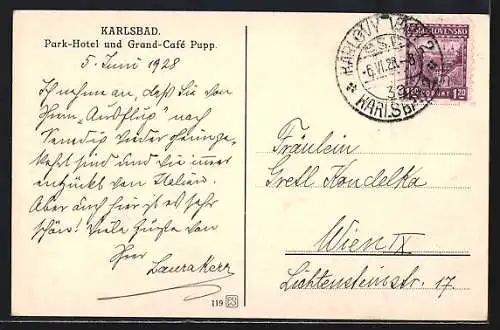 KARLSBAD.
Park-Hotel und Grand-Café Pupp.
5. Juni 1928
Ich nehme an, daß Sie von
Ihrem „Ausflug" nach
Venedig wieder heimge-
kehrt sind und wie immer
entzückt von Italien.
Aber auch hier ist es sehr
schön! Viele Grüße von
Ihrer
Laura Kerr
119
KARLOVY VARY 2
-6.VI.28.-
KARLSBAD
ČESKOSLOVENSKO
1.20
1.20
Fräulein
Gretl Kondelka
Wien IX
Lichtensteinstr. 17.